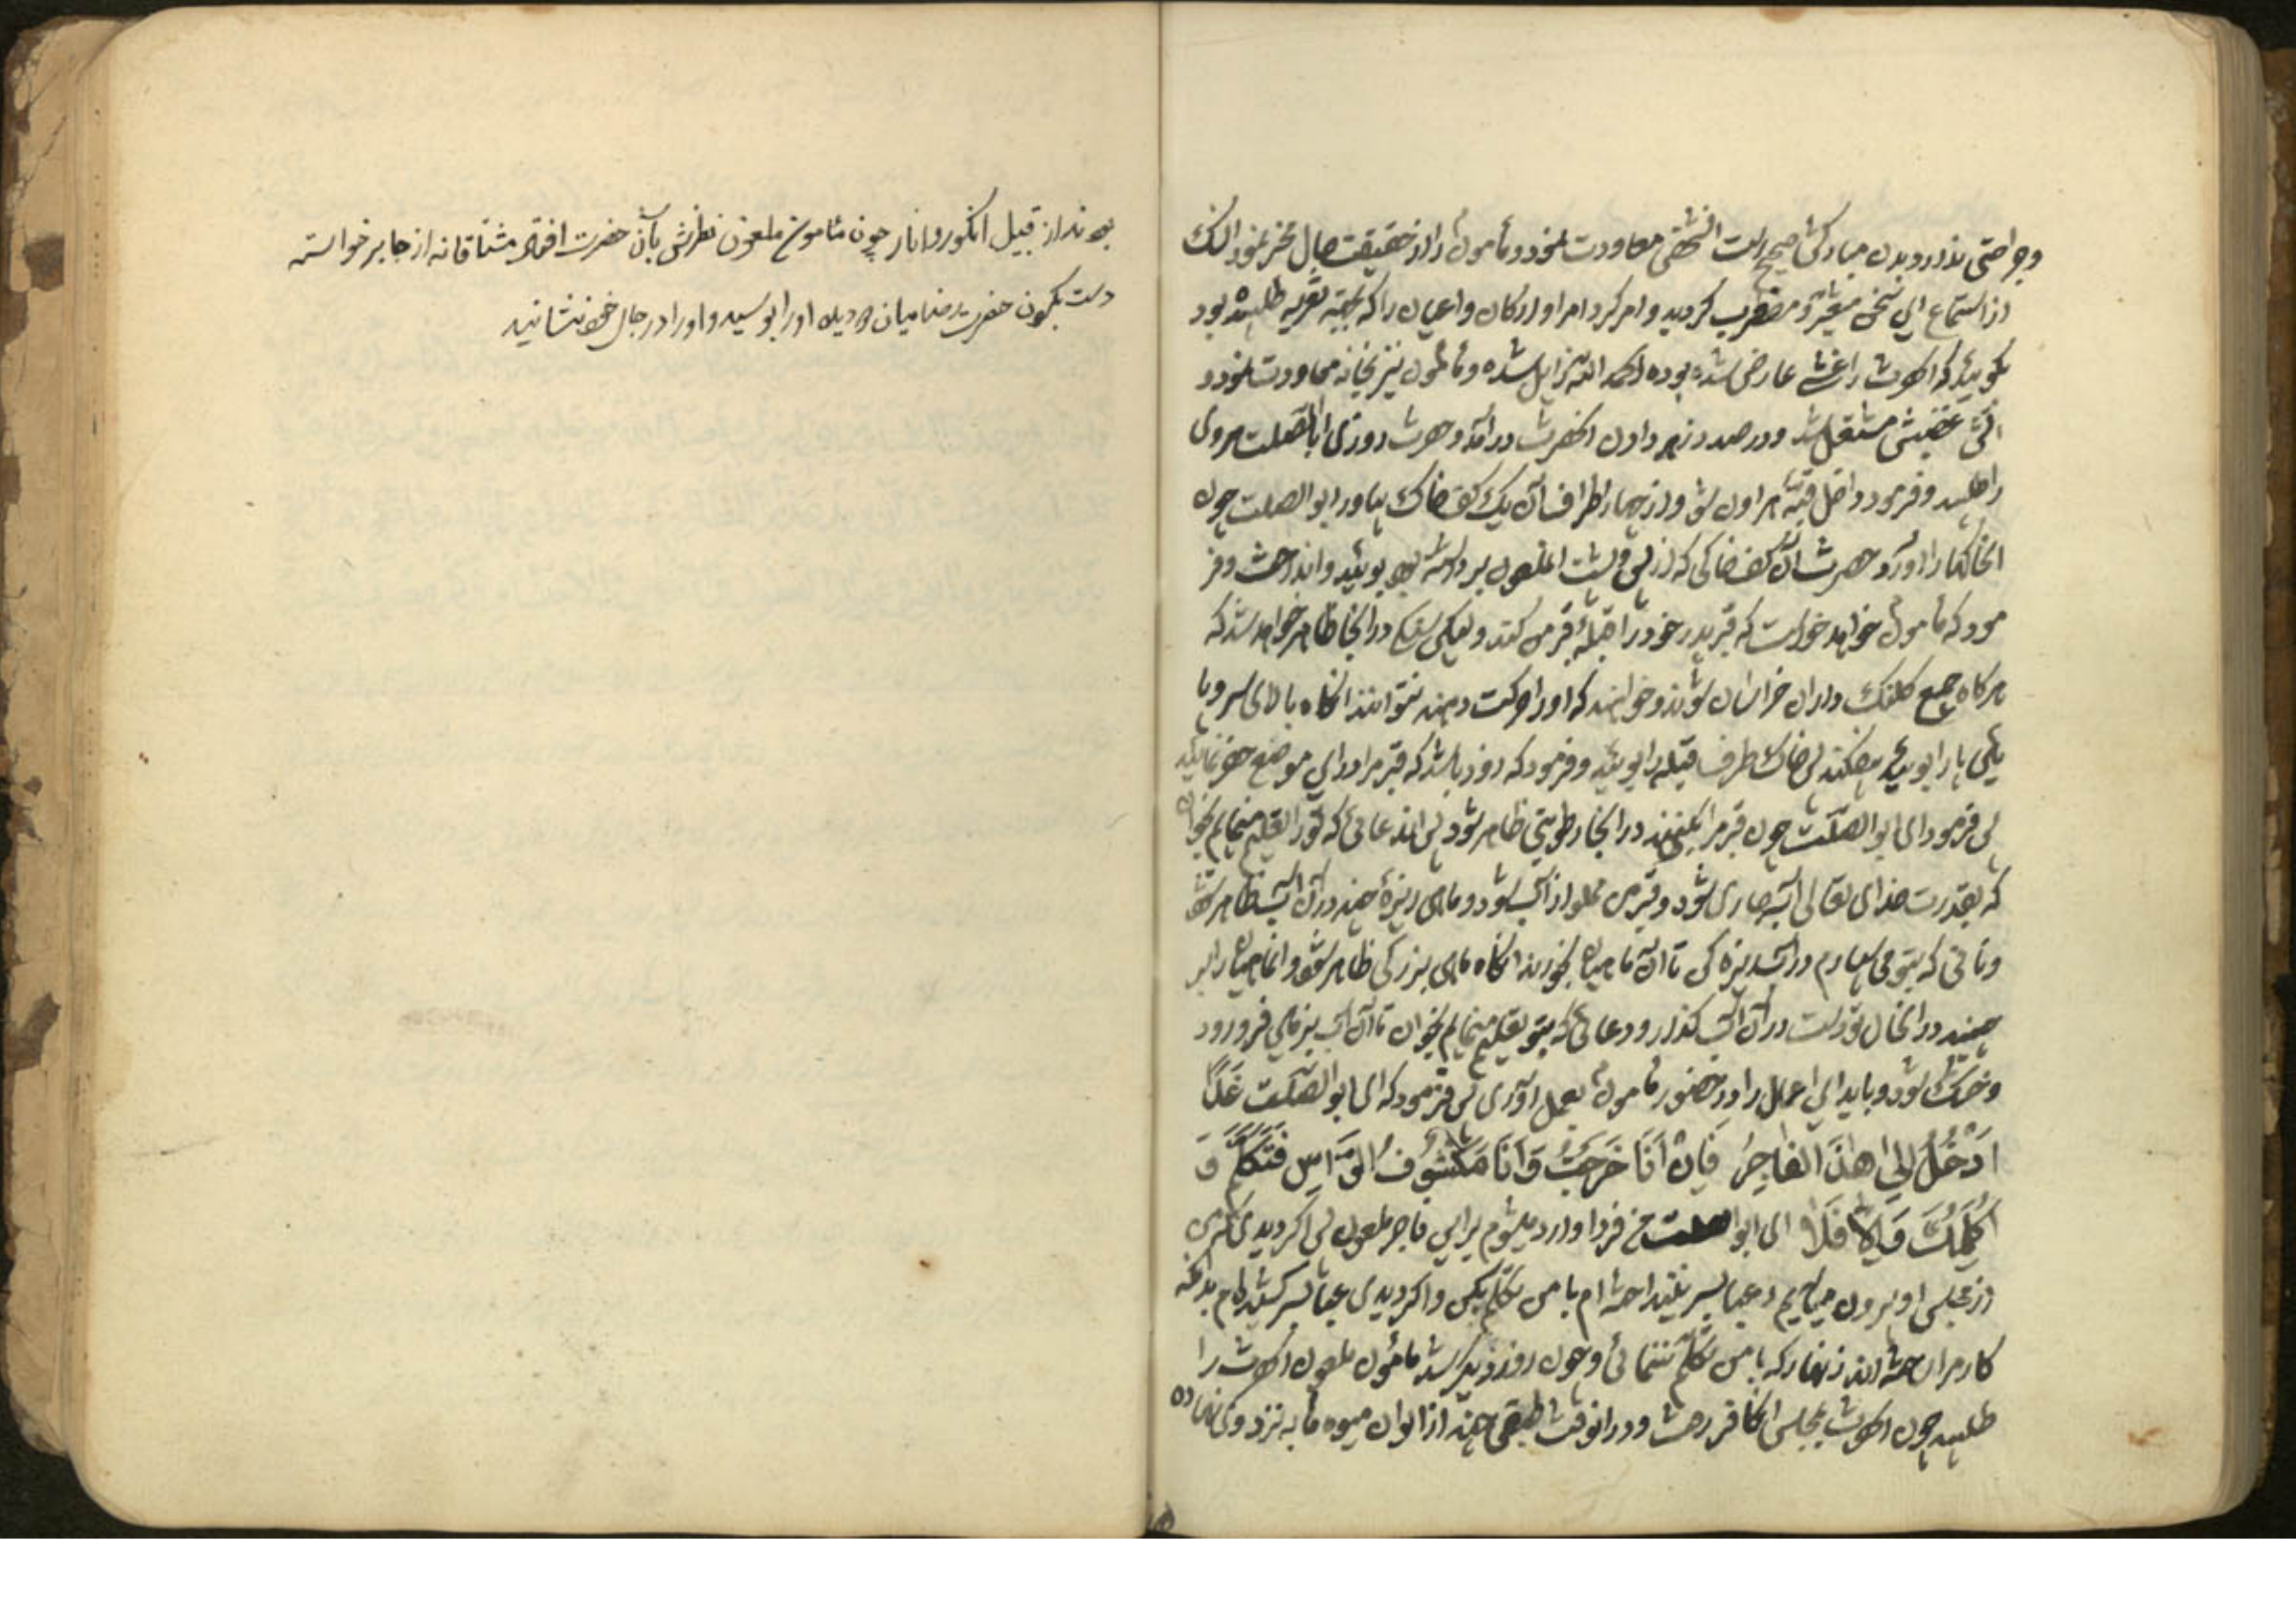 وجراحتی ندارد و بدن مبارکش صحیح است انشخص معاودت نمود و مأمون را از حقیقت حال مخبر نمود
از استماع این سخن متغیر و مضطرب گردید و امر کرد امرا و ارکان و اعیان را که بجهته تعزیه طلبیده بود
بگوئید که انحضرت را غشی عارض شده بوده الحمد الله زایل شده و مأمون نیز بخانه معاودت نمود و
غضبش مشتعل شد و درصدد زهر دادن انحضرت درآمد و حضرت روزی اباالصلت هروی
را طلبید و فرمود داخل قبهٔ هرون شو و از چهار اطراف آن یک کف خاک بیاور ابوالصلت چون
انخاکها را آورد حضرت آن کف خاکی که از پس پشت انملعون برداشته بود بوئید و انداخت و فر
مود که مأمون خواهد خواست که قبر پدر خود را قبلهٔ قبر من کند و سنگی در انجا ظاهر خواهد شد که
هرگاه جمیع کلنک داران خراسان شوند و خواهند که اورا حرکت دهند نتوانند انگاه بالای سر و پا
یین پا را بوئید بیفکند پس خاک طرف قبله را بوئید و فرمود که زود باشد که قبر مرا در این موضع حفر نمایند
پس فرمود ای ابوالصلت چون قبر مرا بکنند در انجا رطوبتی ظاهر شود پس دعائی که تورا تعلیم مینمایم بخوان
که بقدرت خدای تعالی آب جاری شود و قبر من مملو از آب شود و ماهی ریزهٔ چند در آن آب ظاهر شود
و نانی که بتو می سپارم در آب ریزه کن تا آن ماهیان بخورند انگاه ماهی بزرکی ظاهر شود و ان ماهیان را بر
چیند در انحال تو دست در آن آب گذار و دعائی که بتو تعلیم مینمایم بخوان تا آن آب بزمین فرو رود
و خشک شود و باید این اعمال را در حضور مأمون بعمل آوری پس فرمود که ای ابوالصلت غَدًا
اَدْخُلُ اِلیٰ هٰذَا الفاجِرُ فَاِنْ اَنَا خَرَجْتُ وَ اَنَا مَکْشُوفُ الرَّاْسِ فَتَکَلَّمْ وَ
اُکَلِّمُکَ وَ اِلّا فَلا ای ابوالصلت من فردا وارد میشوم براین فاجر ملعون پس اگر دیدی که من
از مجلس او بیرون میایم و عبا بسر نینداخته ام با من تکلم بکن و اگر دیدی عبا بسر کشیده ام بدانکه
کار مرا ساخته اند زنهار که با من تکلم ننمائی و چون روز دیگر شد مأمون ملعون انحضرت را
طلبید چون انحضرت بمجلس انکافر رفت و در انوقت طبقی چند از الوان میوه ها به نزد وی نهاده
بودند از قبیل انکور و انار چون مأمون ملعون نظرش بآن حضرت افتاد مشتاقانه از جا برخواسته
دست بکردن حضرت میان دو دیده او را بوسید و اورا در جای خود نشانید